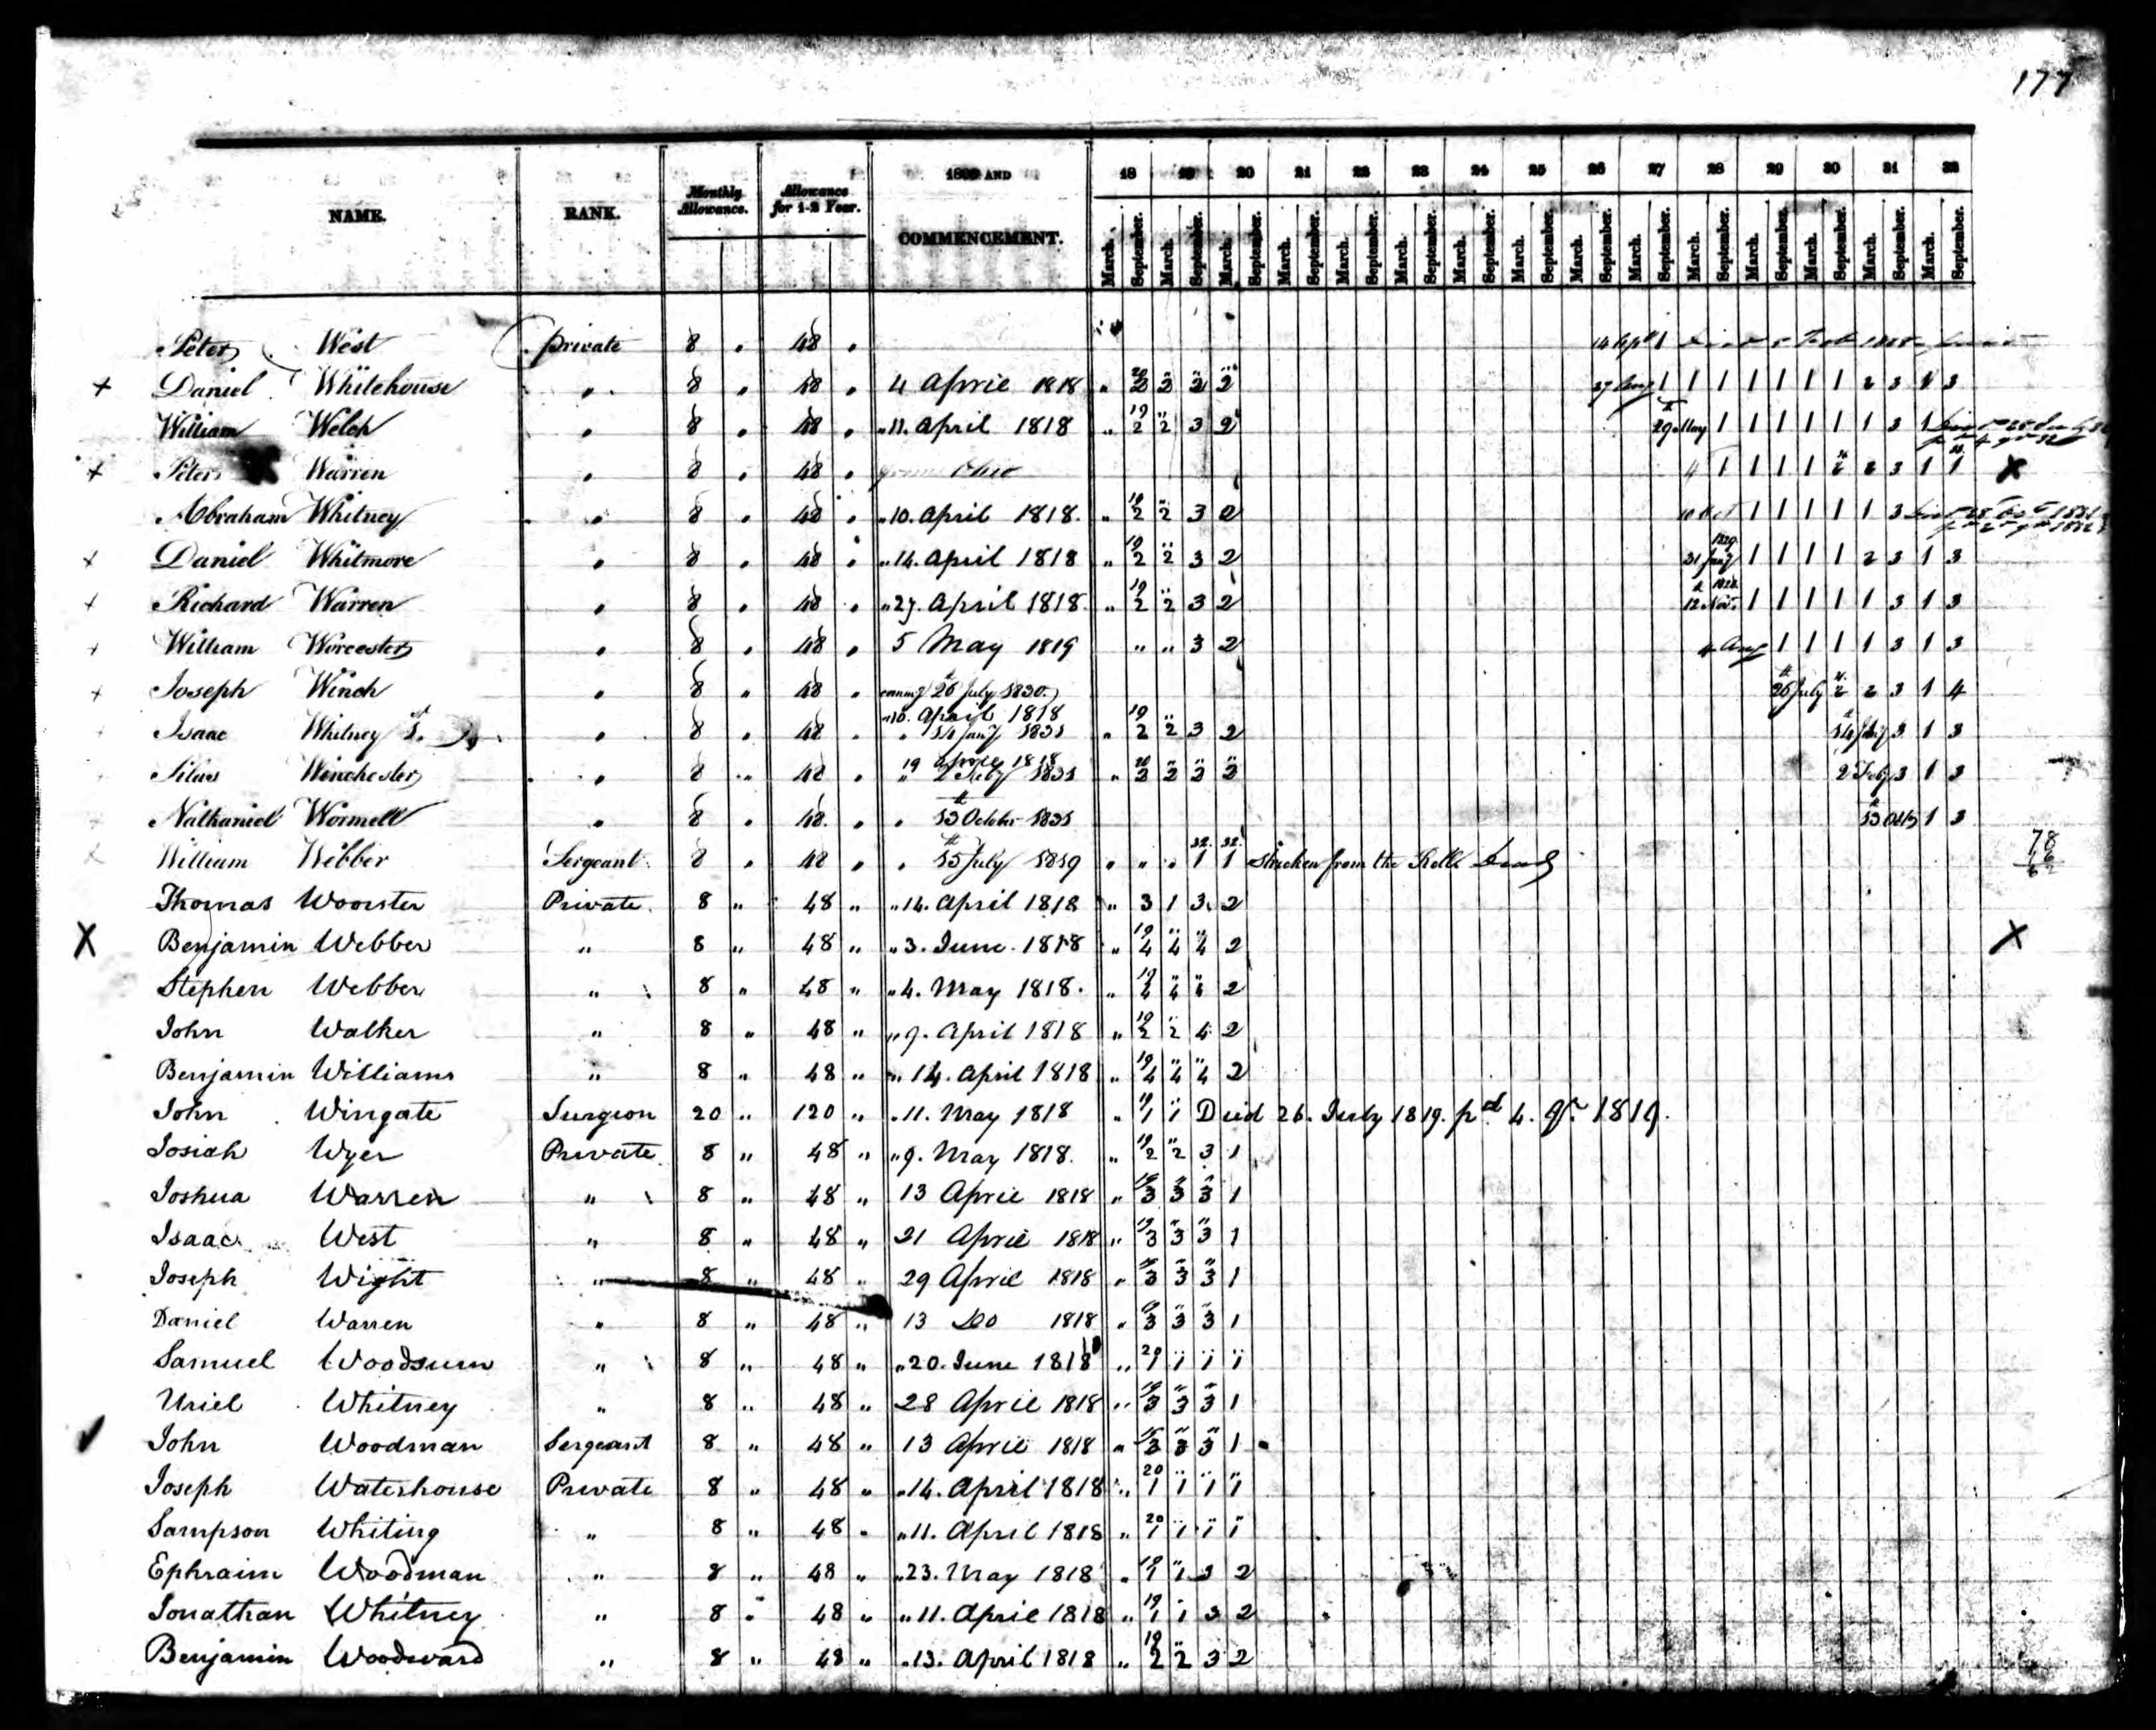 177
NAME. RANK. Monthly Allowance. Allowance for 1-2 Year. 18 AND COMMENCEMENT. 18 19 20 21 22 23 24 25 26 27 28 29 30 31 32
March. September. March. September. March. September. March. September. March. September. March. September. March. September. March. September. March. September. March. September. March. September. March. September. March. September. March. September. March. September.
Peter West Private 8 " 48 "
Daniel Whitehouse " 8 " 48 " 4 April 1818 " 20 2 2 2 2 27 Aug 1 1 1 1 1 1 1 2 3 1 3
William Welch " 8 " 48 " " 11. April 1818 " 19 2 2 3 2 29 May 1 1 1 1 1 1 3 1
Peter Warren " 8 " 48 " from Ohio 4 1 1 1 1 2 2 3 1 1 X
Abraham Whitney " 8 " 48 " " 10. April 1818. " 19 2 2 3 2 1 1 1 1 1 3
Daniel Whitmore " 8 " 48 " " 14. April 1818 " 19 2 2 3 2 31 Jany 1829 1 1 1 1 2 3 1 3
Richard Warren " 8 " 48 " " 27. April 1818. " 19 2 2 3 2 12 Nov. 1828 1 1 1 1 1 3 1 3
William Worcester " 8 " 48 " 5 May 1819 " " 3 2 4 Aug 1 1 1 1 3 1 3
Joseph Winch " 8 " 48 " 26th July 1830. 26th July 2 2 3 1 4
Isaac Whitney 1st " 8 " 48 " " 10. April 1818 " 19 2 2 3 2 14 Jany 3 1 3
" 14 Jany 1831
Silas Winchester " 8 " 48 " 19 April 1818 " 20 2 2 2 2 2 Feby 3 1 3
" 2 Feby 1831
Nathaniel Wormell " 8 " 48. " " 13th October 1831 13th Octr 1 3
William Webber Sergeant 8 " 48 " " 15th July 1819 " " " 1 1 Stricken from the Rolls
78
16
62
Thomas Wooster Private. 8 " 48 " " 14. April 1818 " 3 1 3. 2
X Benjamin Webber " 8 " 48 " " 3. June. 1818 " 19 4 4 4 2 X
Stephen Webber " 8 " 48 " " 4. May 1818. " 19 4 4 4 2
John Walker " 8 " 48 " " 9. April 1818 " 19 2 2 4 2
Benjamin Williams " 8 " 48 " " 14. April 1818 " 19 4 4 4 2
John Wingate Surgeon 20 " 120 " " 11. May 1818 " 19 1 1 Died 26. July 1819. pd. 4. qr. 1819.
Josiah Wyer Private 8 " 48 " " 9. May 1818. " 19 2 2 3 1
Joshua Warren " 8 " 48 " 13 April 1818 " 19 3 3 3 1
Isaac West " 8 " 48 " 21 April 1818 " 19 3 3 3 1
Joseph Wight " 8 " 48 " 29 April 1818 " 19 3 3 3 1
Daniel Warren " 8 " 48 " 13 Do 1818 " 19 3 3 3 1
Samuel Woodsum " 8 " 48 " " 20. June 1818 " 20 1 1 1 1
Uriel Whitney " 8 " 48 " 28 April 1818 " 19 3 3 3 1
John Woodman Sergeant 8 " 48 " 13 April 1818 " 19 3 3 3 1
Joseph Waterhouse Private 8 " 48 " " 14. April 1818 " 20 1 1 1 1
Sampson Whiting " 8 " 48 " " 11. April 1818 " 20 1 1 1 1
Ephraim Woodman " 8 " 48 " " 23. May 1818 " 19 1 1 3 2
Jonathan Whitney " 8 " 48 " " 11. April 1818 " 19 1 1 3 2
Benjamin Woodward " 8 " 48 " " 13. April 1818 " 19 2 2 3 2